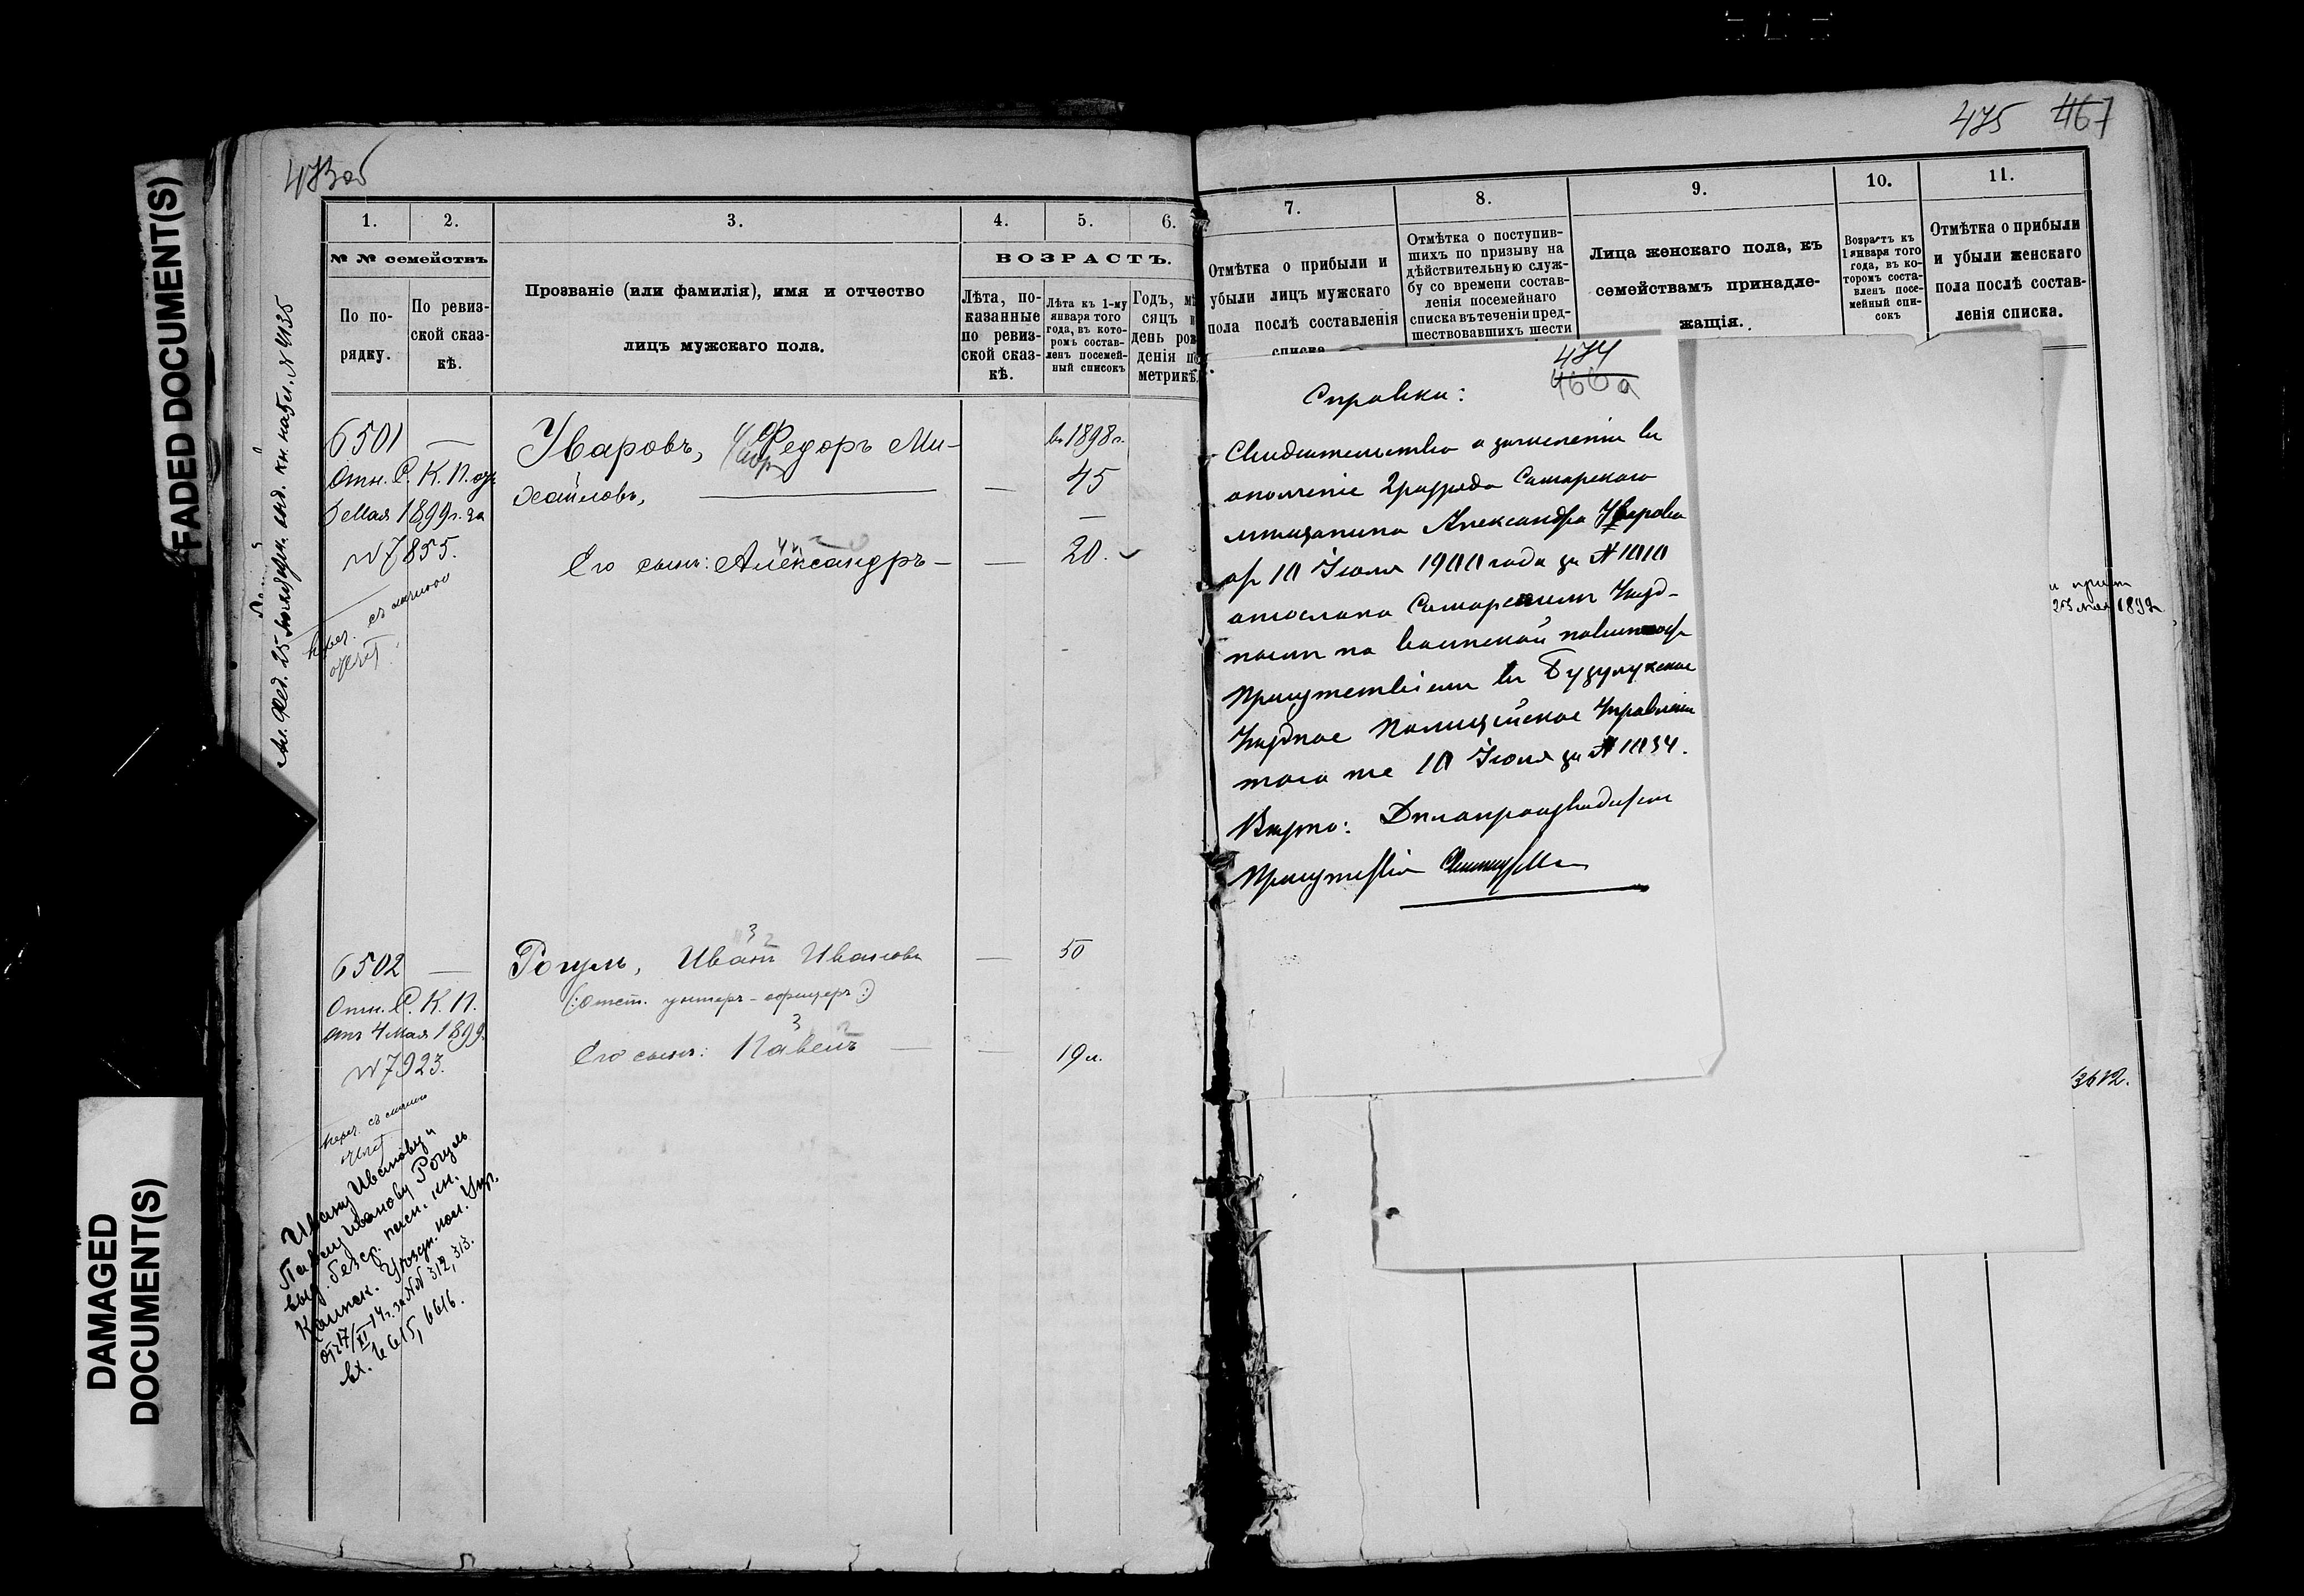 FADED DOCUMENT(S)
DAMAGED
DOCUMENT(S)
473об
1.
2.
3.
4.
5.
6.
№ № семействъ
По по-
рядку.
По ревиз-
ской сказ-
кѣ.
Прозваніе (или фамилія), имя и отчество
лицъ мужскаго пола.
ВОЗРАСТЪ.
Лѣта, по-
казанные
по ревиз-
ской сказ-
кѣ.
Лѣта къ 1-му
января того
года, въ кото-
ромъ состав-
ленъ посемей-
ный списокъ
Годъ, мѣ
сяцъ и
день рож
денія по
метрикѣ.
6501
Отн. С. К. П. от
5 Мая 1899 г. за
№ 7855.
Уваровъ, Федоръ Ми-
хайловъ,
въ 1898 г.
45
Его сынъ: Александръ
20.
6502
Отн. С. К. П.
отъ 4 Мая 1899
№ 7923.
Рогуль, Иванъ Ивановъ
50
(:отст. унтеръ-офицеръ:)
Его сынъ: Павелъ
19 л.
Ивану Иванову и
Павлу Иванову Рогуль
выд. безср. пасп. кн.
Уѣздн. пол. Упр.
от 17/XI 14 г. за №№ 312, 313.
вх. 6615, 6616.
475
467
7.
8.
9.
10.
11.
Отмѣтка о прибыли и
убыли лицъ мужскаго
пола послѣ составленія
списка
Отмѣтка о поступив-
шихъ по призыву на
дѣйствительную служ-
бу со времени состав-
ленія посемейнаго
списка въ теченіи пред-
шествовавшихъ шести
Лица женскаго пола, къ
семействамъ принадле-
жащія.
Возрастъ къ
1 января того
года, въ ко-
торомъ соста-
вленъ посе-
мейный спи-
сокъ
Отмѣтка о прибыли
и убыли женскаго
пола послѣ состав-
ленія списка.
474
466а
Справка:
Свидетельство о зачислении въ
ополчение 2 разряда Самарскаго
мѣщанина Александра Уварова
от 10 Іюля 1900 года за № 1010
отослано Самарскимъ Уѣзд-
нымъ по воинской повинност
Присутствіемъ въ Бузулукское
Уѣздное Полицейское Управленіе
того же 10 Іюля за № 1034.
Вѣрно: Дѣлопроизводитель
Присутствія
3672.